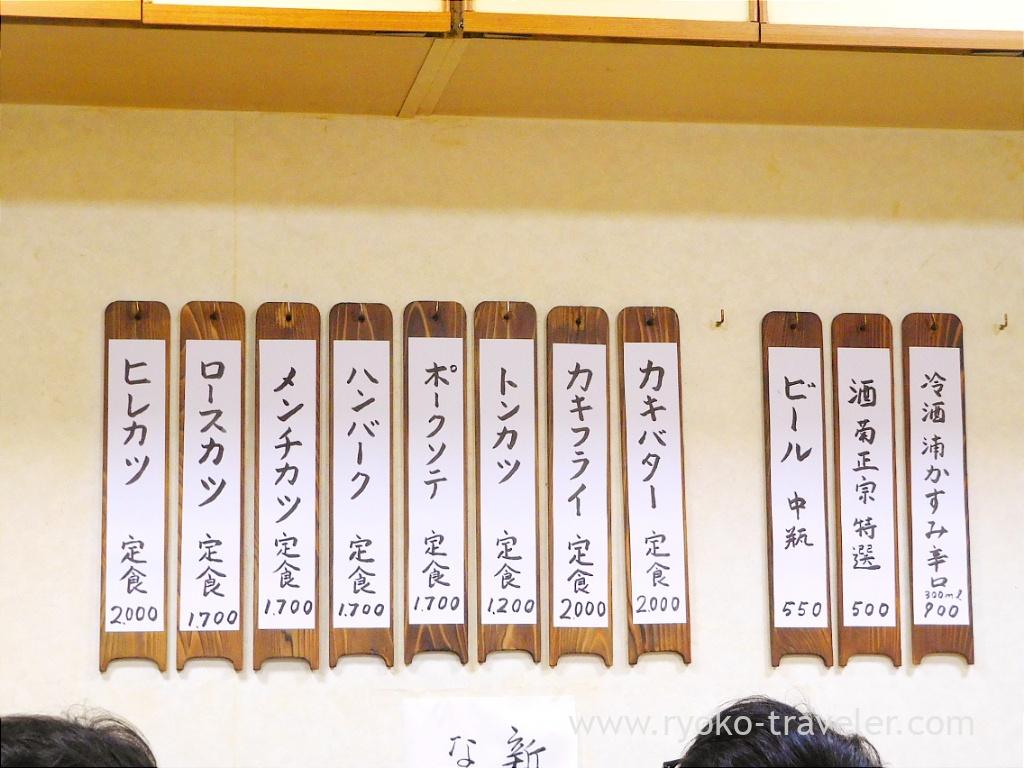 ヒレカツ 定食 2.000
ロースカツ 定食 1.700
メンチカツ 定食 1.700
ハンバーク 定食 1.700
ポークソテ 定食 1.700
トンカツ 定食 1.200
カキフライ 定食 2.000
カキバター 定食 2.000
ビール 中瓶 550
酒 菊正宗 特選 500
冷酒 浦かすみ 辛口 300ml 900
新
な
www.ryoko-traveler.com